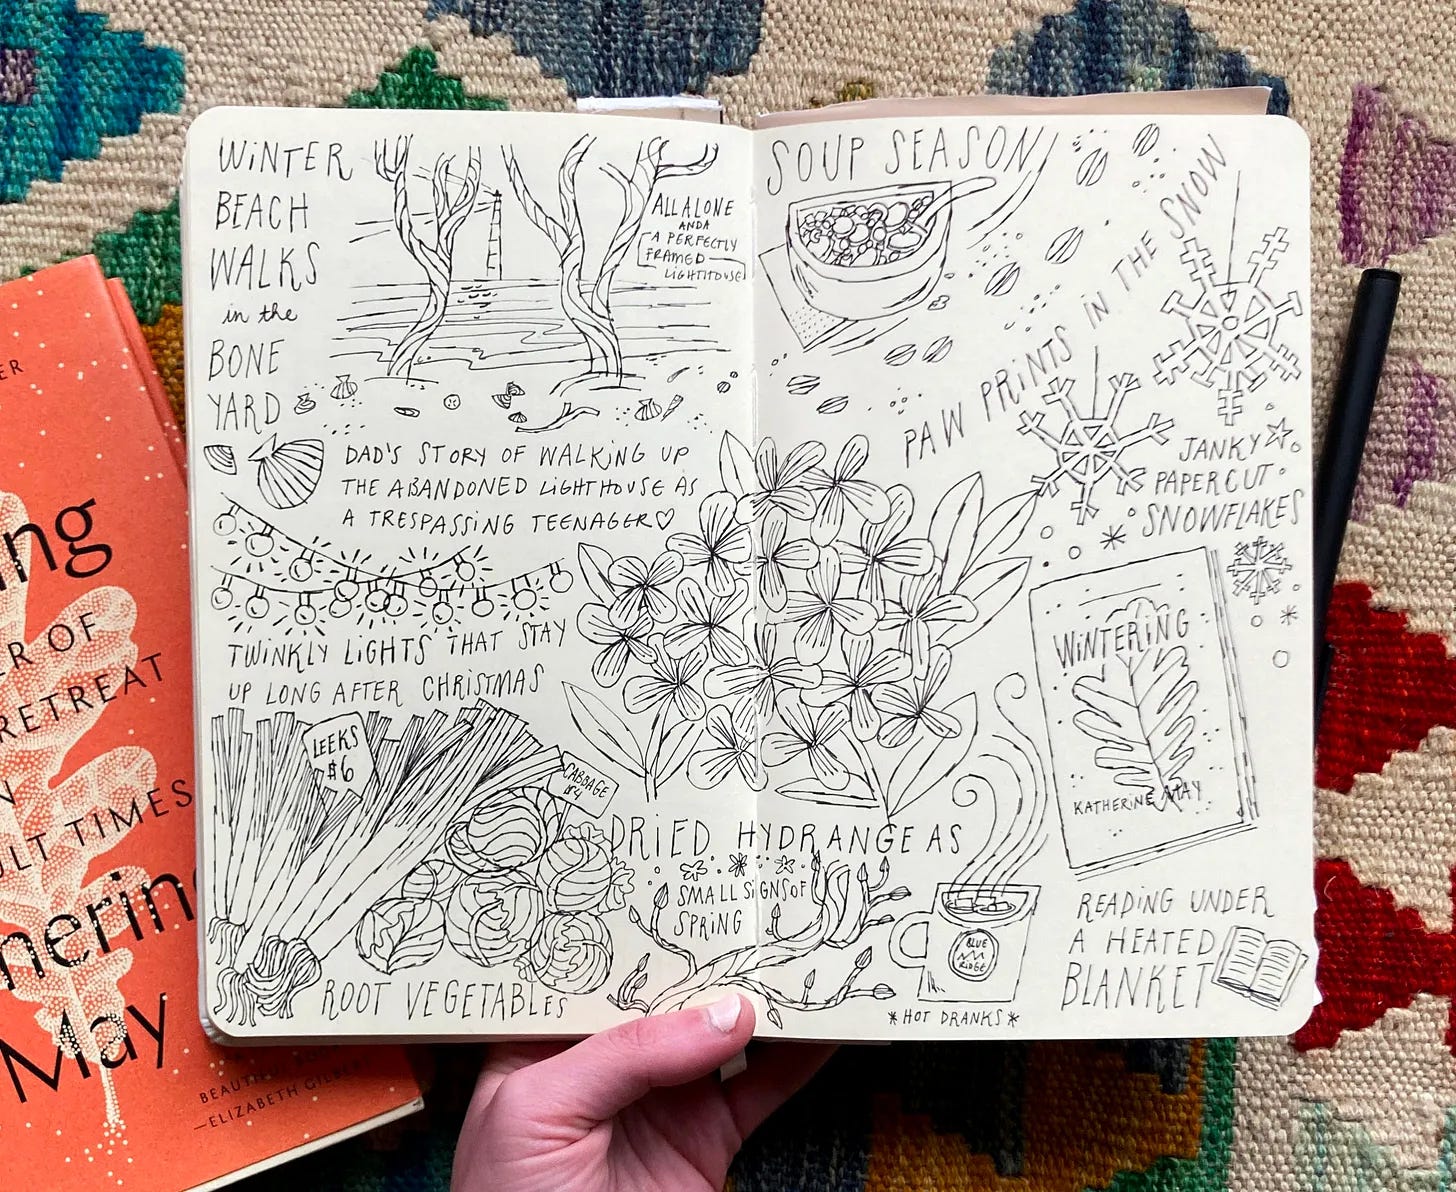 WINTER
BEACH
WALKS
in the
BONE
YARD
ALL ALONE
AND A
A PERFECTLY
FRAMED
LIGHTHOUSE
DAD'S STORY OF WALKING UP
THE ABANDONED LIGHTHOUSE AS
A TRESPASSING TEENAGER♡
TWINKLY LIGHTS THAT STAY
UP LONG AFTER CHRISTMAS
LEEKS
$6
CABBAGE
$4
ROOT VEGETABLES
DRIED HYDRANGEAS
SMALL SIGNS OF
SPRING
SOUP SEASON
PAW PRINTS IN THE SNOW
JANKY
PAPERCUT
SNOWFLAKES
WINTERING
KATHERINE MAY
BLUE
RIDGE
*HOT DRANKS*
READING UNDER
A HEATED
BLANKET
ER
ng
R OF
RETREAT
N
ULT TIMES
herine
May
BEAUTIFUL
—ELIZABETH GILBE